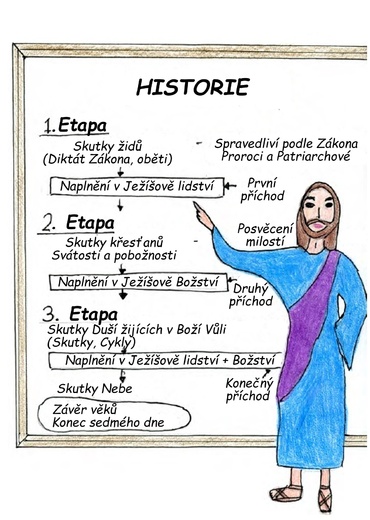 HISTORIE
1. Etapa
Skutky židů - Spravedliví podle Zákona
(Diktát Zákona, oběti) Proroci a Patriarchové
Naplnění v Ježíšově lidství
První
příchod
2. Etapa
Skutky křesťanů - Posvěcení
Svátosti a pobožnosti milostí
Naplnění v Ježíšově Božství
Druhý
příchod
3. Etapa
Skutky Duší žijících v Boží Vůli
(Skutky, Cykly)
Naplnění v Ježíšově lidství + Božství
Konečný
příchod
Skutky Nebe
Závěr věků
Konec sedmého dne